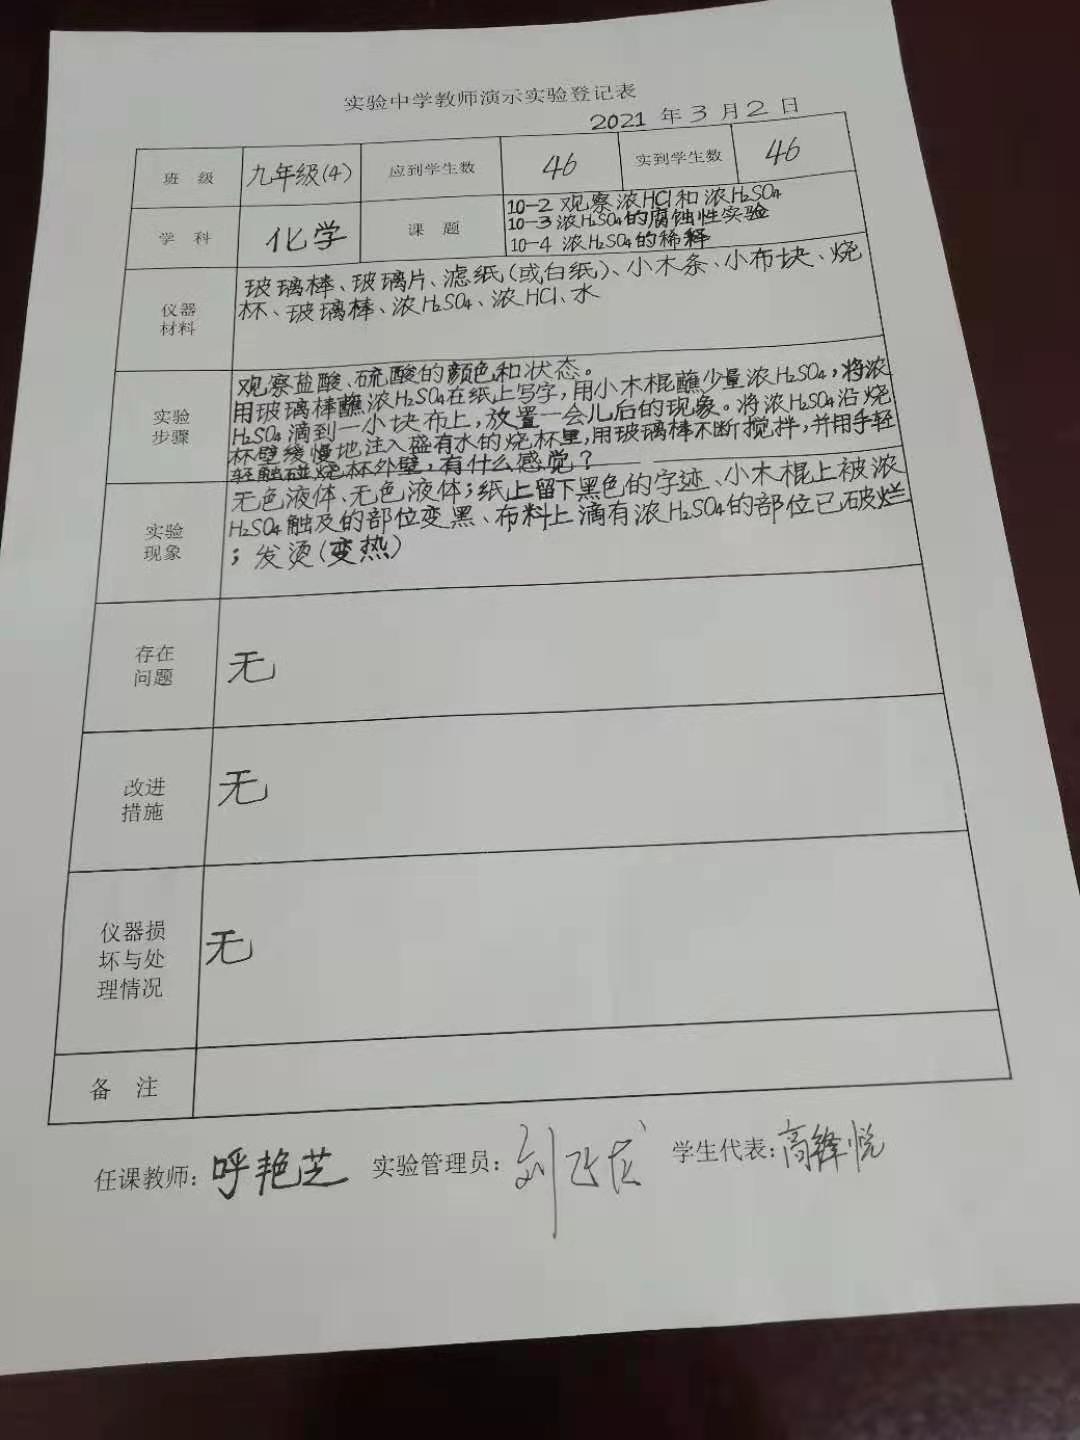 实验中学教师演示实验登记表
2021 年 3 月 2 日
班 级 九年级(4) 应到学生数 46 实到学生数 46
学 科 化学 课 题 10-2 观察浓HCl和浓H₂SO₄
10-3 浓H₂SO₄的腐蚀性实验
10-4 浓H₂SO₄的稀释
仪器
材料
玻璃棒、玻璃片、滤纸(或白纸)、小木条、小布块、烧
杯、玻璃棒、浓H₂SO₄、浓HCl、水
实验
步骤
观察盐酸、硫酸的颜色和状态。
用玻璃棒蘸浓H₂SO₄在纸上写字,用小木棍蘸少量浓H₂SO₄,将浓
H₂SO₄滴到一小块布上,放置一会儿后的现象。将浓H₂SO₄沿烧
杯壁缓慢地注入盛有水的烧杯里,用玻璃棒不断搅拌,并用手轻
轻触碰烧杯外壁,有什么感觉?
实验
现象
无色液体、无色液体;纸上留下黑色的字迹、小木棍上被浓
H₂SO₄触及的部位变黑、布料上滴有浓H₂SO₄的部位已破烂
;发烫(变热)
存在
问题
无
改进
措施
无
仪器损
坏与处
理情况
无
备 注
任课教师:呼艳芝 实验管理员:刘 学生代表:高锋悦